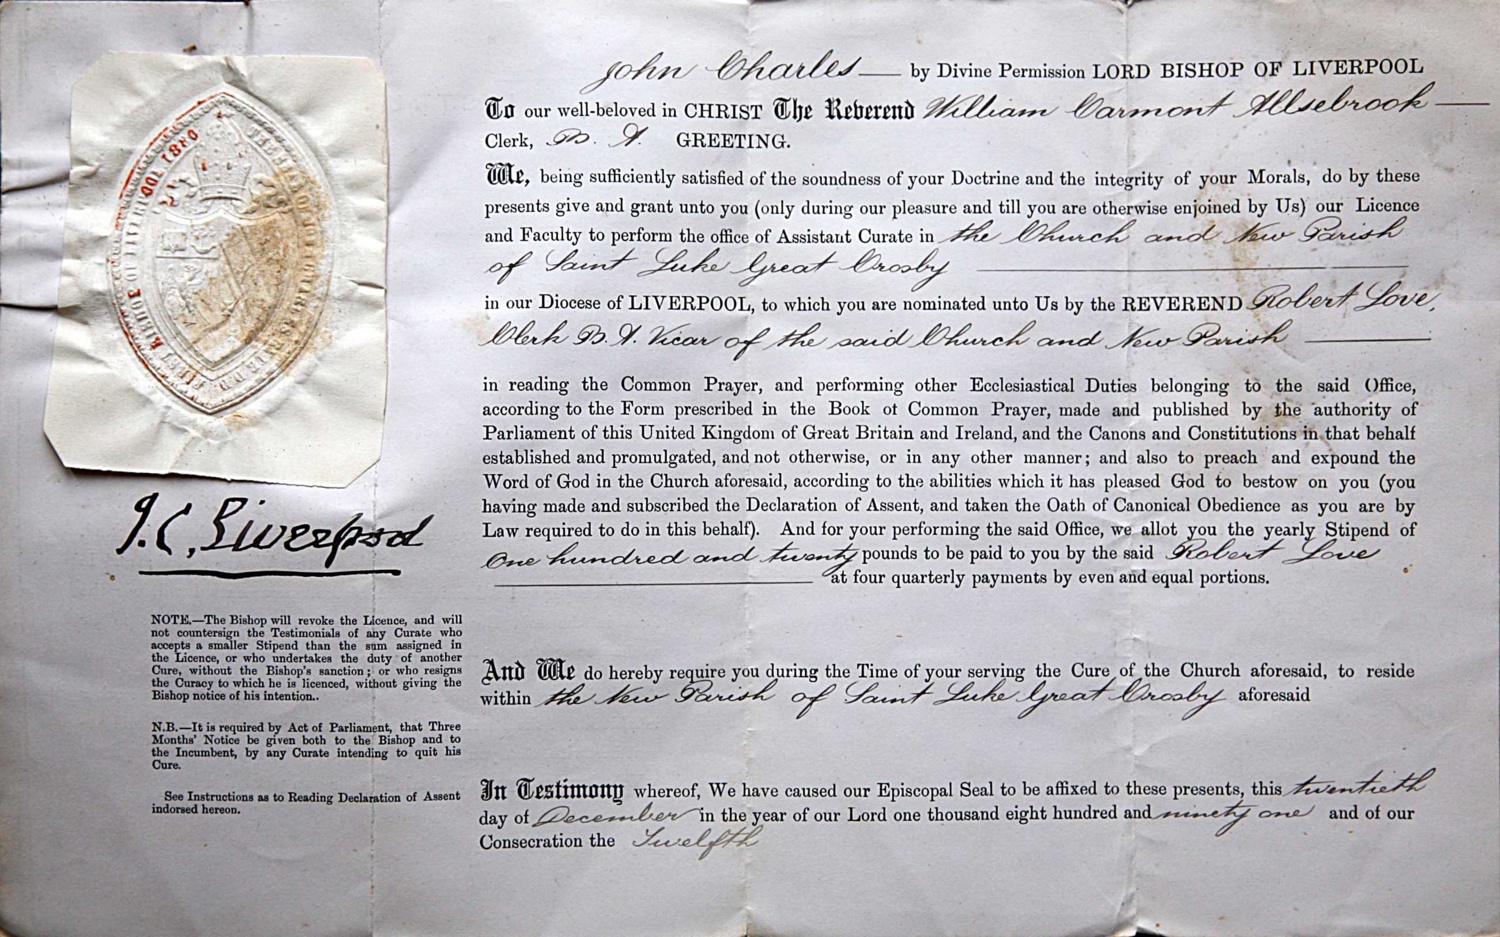 John Charles — by Divine Permission LORD BISHOP OF LIVERPOOL
To our well-beloved in CHRIST The Reverend William Carmont Allsebrook —
Clerk, B. A. GREETING.
We, being sufficiently satisfied of the soundness of your Doctrine and the integrity of your Morals, do by these
presents give and grant unto you (only during our pleasure and till you are otherwise enjoined by Us) our Licence
and Faculty to perform the office of Assistant Curate in the Church and New Parish
of Saint Luke Great Crosby
in our Diocese of LIVERPOOL, to which you are nominated unto Us by the REVEREND Robert Love,
Clerk B. A. Vicar of the said Church and New Parish
in reading the Common Prayer, and performing other Ecclesiastical Duties belonging to the said Office,
according to the Form prescribed in the Book of Common Prayer, made and published by the authority of
Parliament of this United Kingdom of Great Britain and Ireland, and the Canons and Constitutions in that behalf
established and promulgated, and not otherwise, or in any other manner; and also to preach and expound the
Word of God in the Church aforesaid, according to the abilities which it has pleased God to bestow on you (you
having made and subscribed the Declaration of Assent, and taken the Oath of Canonical Obedience as you are by
Law required to do in this behalf). And for your performing the said Office, we allot you the yearly Stipend of
One hundred and twenty pounds to be paid to you by the said Robert Love
at four quarterly payments by even and equal portions.
And We do hereby require you during the Time of your serving the Cure of the Church aforesaid, to reside
within the New Parish of Saint Luke Great Crosby aforesaid
In Testimony whereof, We have caused our Episcopal Seal to be affixed to these presents, this twentieth
day of December in the year of our Lord one thousand eight hundred and ninety one and of our
Consecration the Twelfth
J. C. Liverpool
NOTE.—The Bishop will revoke the Licence, and will
not countersign the Testimonials of any Curate who
accepts a smaller Stipend than the sum assigned in
the Licence, or who undertakes the duty of another
Cure, without the Bishop's sanction; or who resigns
the Curacy to which he is licenced, without giving the
Bishop notice of his intention..
N.B.—It is required by Act of Parliament, that Three
Months' Notice be given both to the Bishop and to
the Incumbent, by any Curate intending to quit his
Cure.
See Instructions as to Reading Declaration of Assent
indorsed hereon.
FIRST BISHOP OF LIVERPOOL 1880